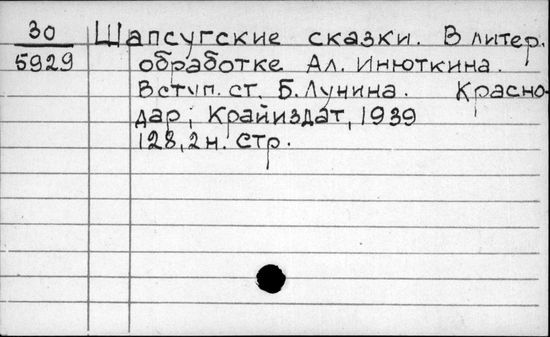 30 Шапсугские сказки. В литер.
5929 обработке Ал. Инюткина.
Вступ. ст. Б. Лунина. Красно-
дар, Крайиздат, 1939
128, 2 н. стр.